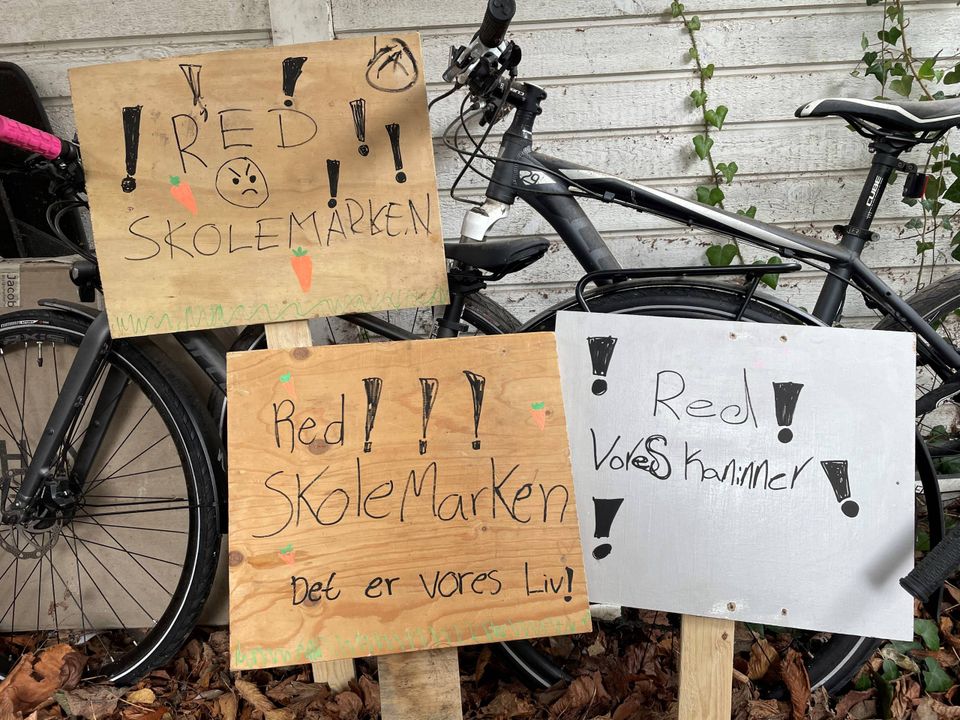 ! ! Ⓐ
! RED ! !
! SKOLEMARKEN
Red!!!
SKoleMarKen
Det er vores Liv!
! Red!
VoreS Kaninner !
!
29
CUBE
Jacob